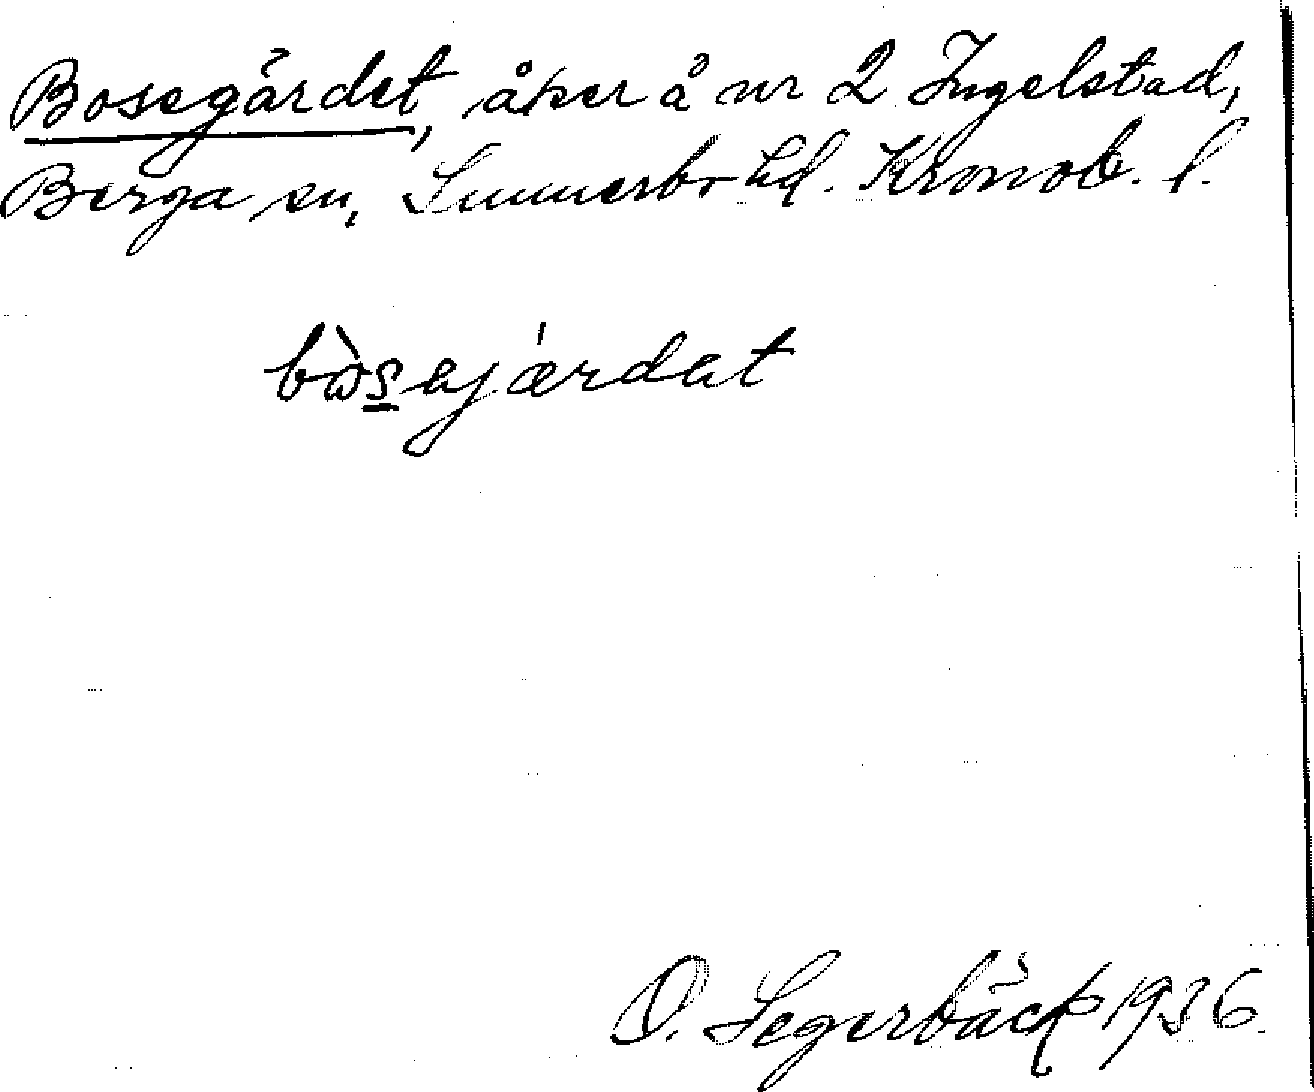 Bosegärdet, åker å nr 2 Ingelstad,
Berga sn, Sunnerbo hd. Kronob. l.
bòsejærdat
O. Segerbäck 1936.